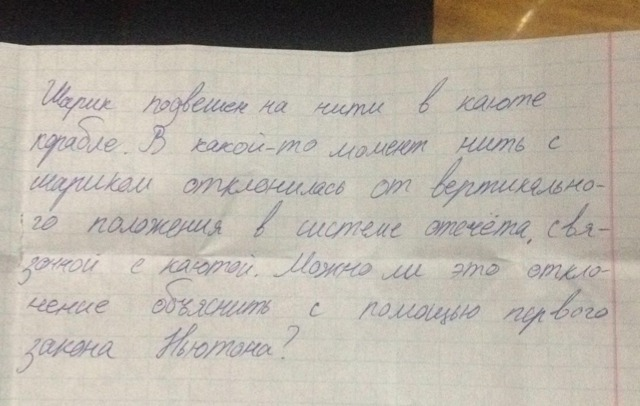 Шарик подвешен на нити в каюте
корабле. В какой-то момент нить с
шариком отклонилась от вертикально-
го положения в системе отсчёта, свя-
занной с каютой. Можно ли это откло-
нение объяснить с помощью первого
закона Ньютона?